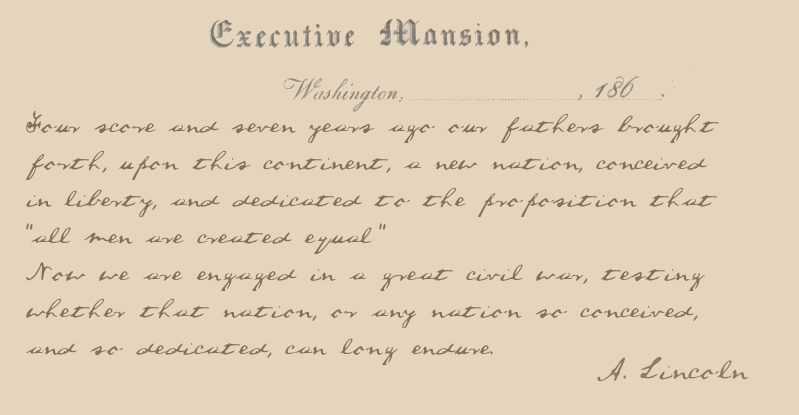 Executive Mansion,
Washington, , 186 .
Four score and seven years ago our fathers brought
forth, upon this continent, a new nation, conceived
in liberty, and dedicated to the proposition that
"all men are created equal"
Now we are engaged in a great civil war, testing
whether that nation, or any nation so conceived,
and so dedicated, can long endure.
A. Lincoln